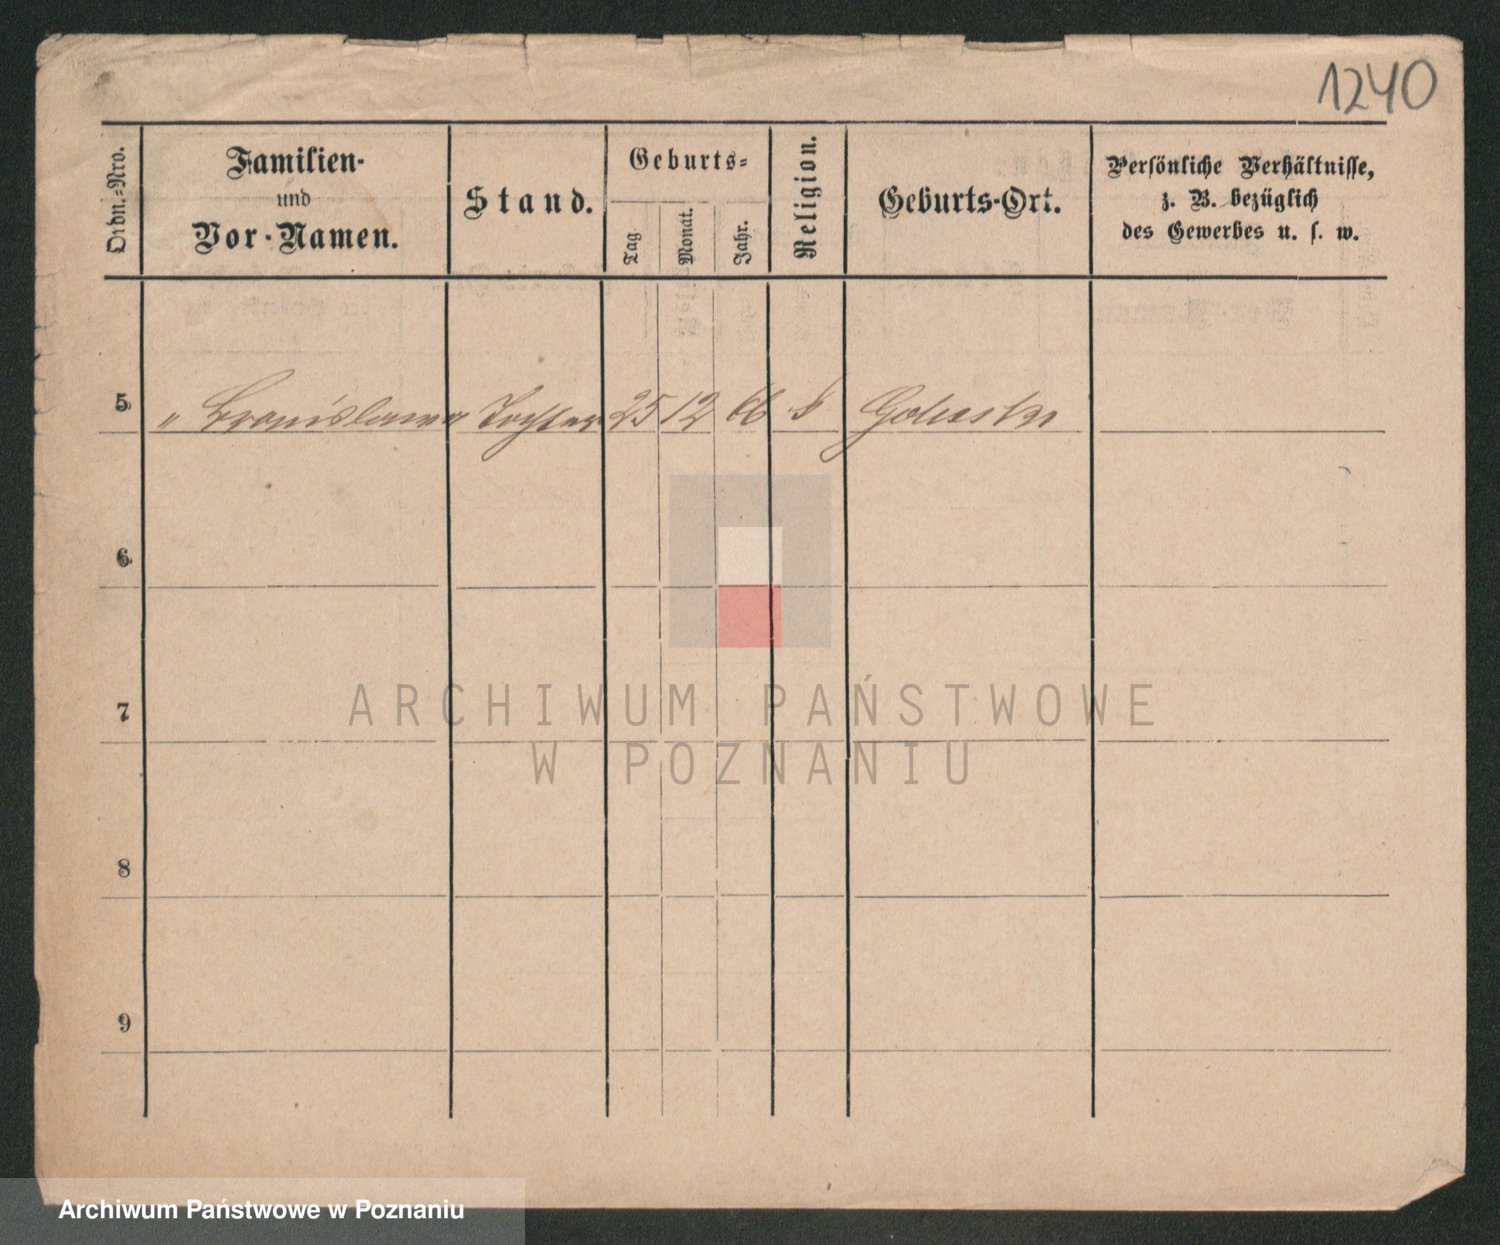 1240
Ordn.-Nro.
Familien-
und
Vor-Namen.
Stand.
Geburts-
Tag
Monat.
Jahr.
Religion.
Geburts-Ort.
Persönliche Verhältnisse,
z. B. bezüglich
des Gewerbes u. s. w.
5 " Bronislawa Tochter 25 12 66
6
7
8
9
ARCHIWUM PAŃSTWOWE
W POZNANIU
Archiwum Państwowe w Poznaniu